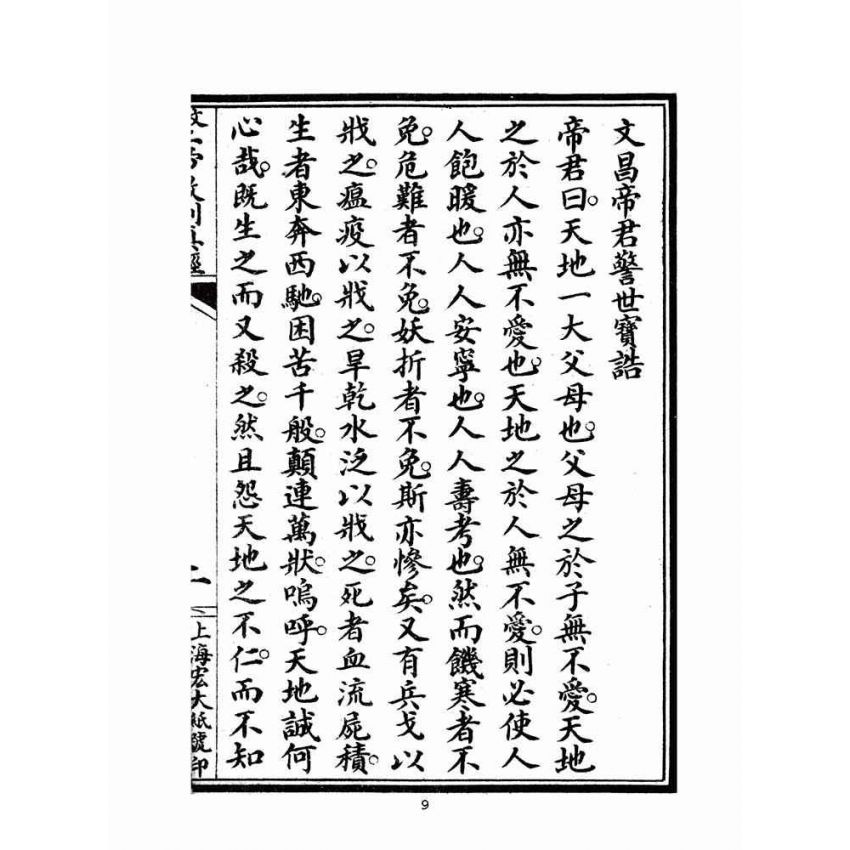 文昌帝君警世寶誥
帝君曰。天地一大父母也。父母之於子無不愛。天地
之於人亦無不愛也。天地之於人無不愛。則必使人
人飽暖也。人人安寧也。人人壽考也。然而饑寒者不
免。危難者不免。妖折者不免。斯亦慘矣。又有兵戈以
戕之。瘟疫以戕之。旱乾水泛以戕之。死者血流屍積。
生者東奔西馳。困苦千般。顛連萬狀。嗚呼。天地誠何
心哉。既生之而又殺之。然且怨天地之不仁。而不知
上海宏大紙號印
9